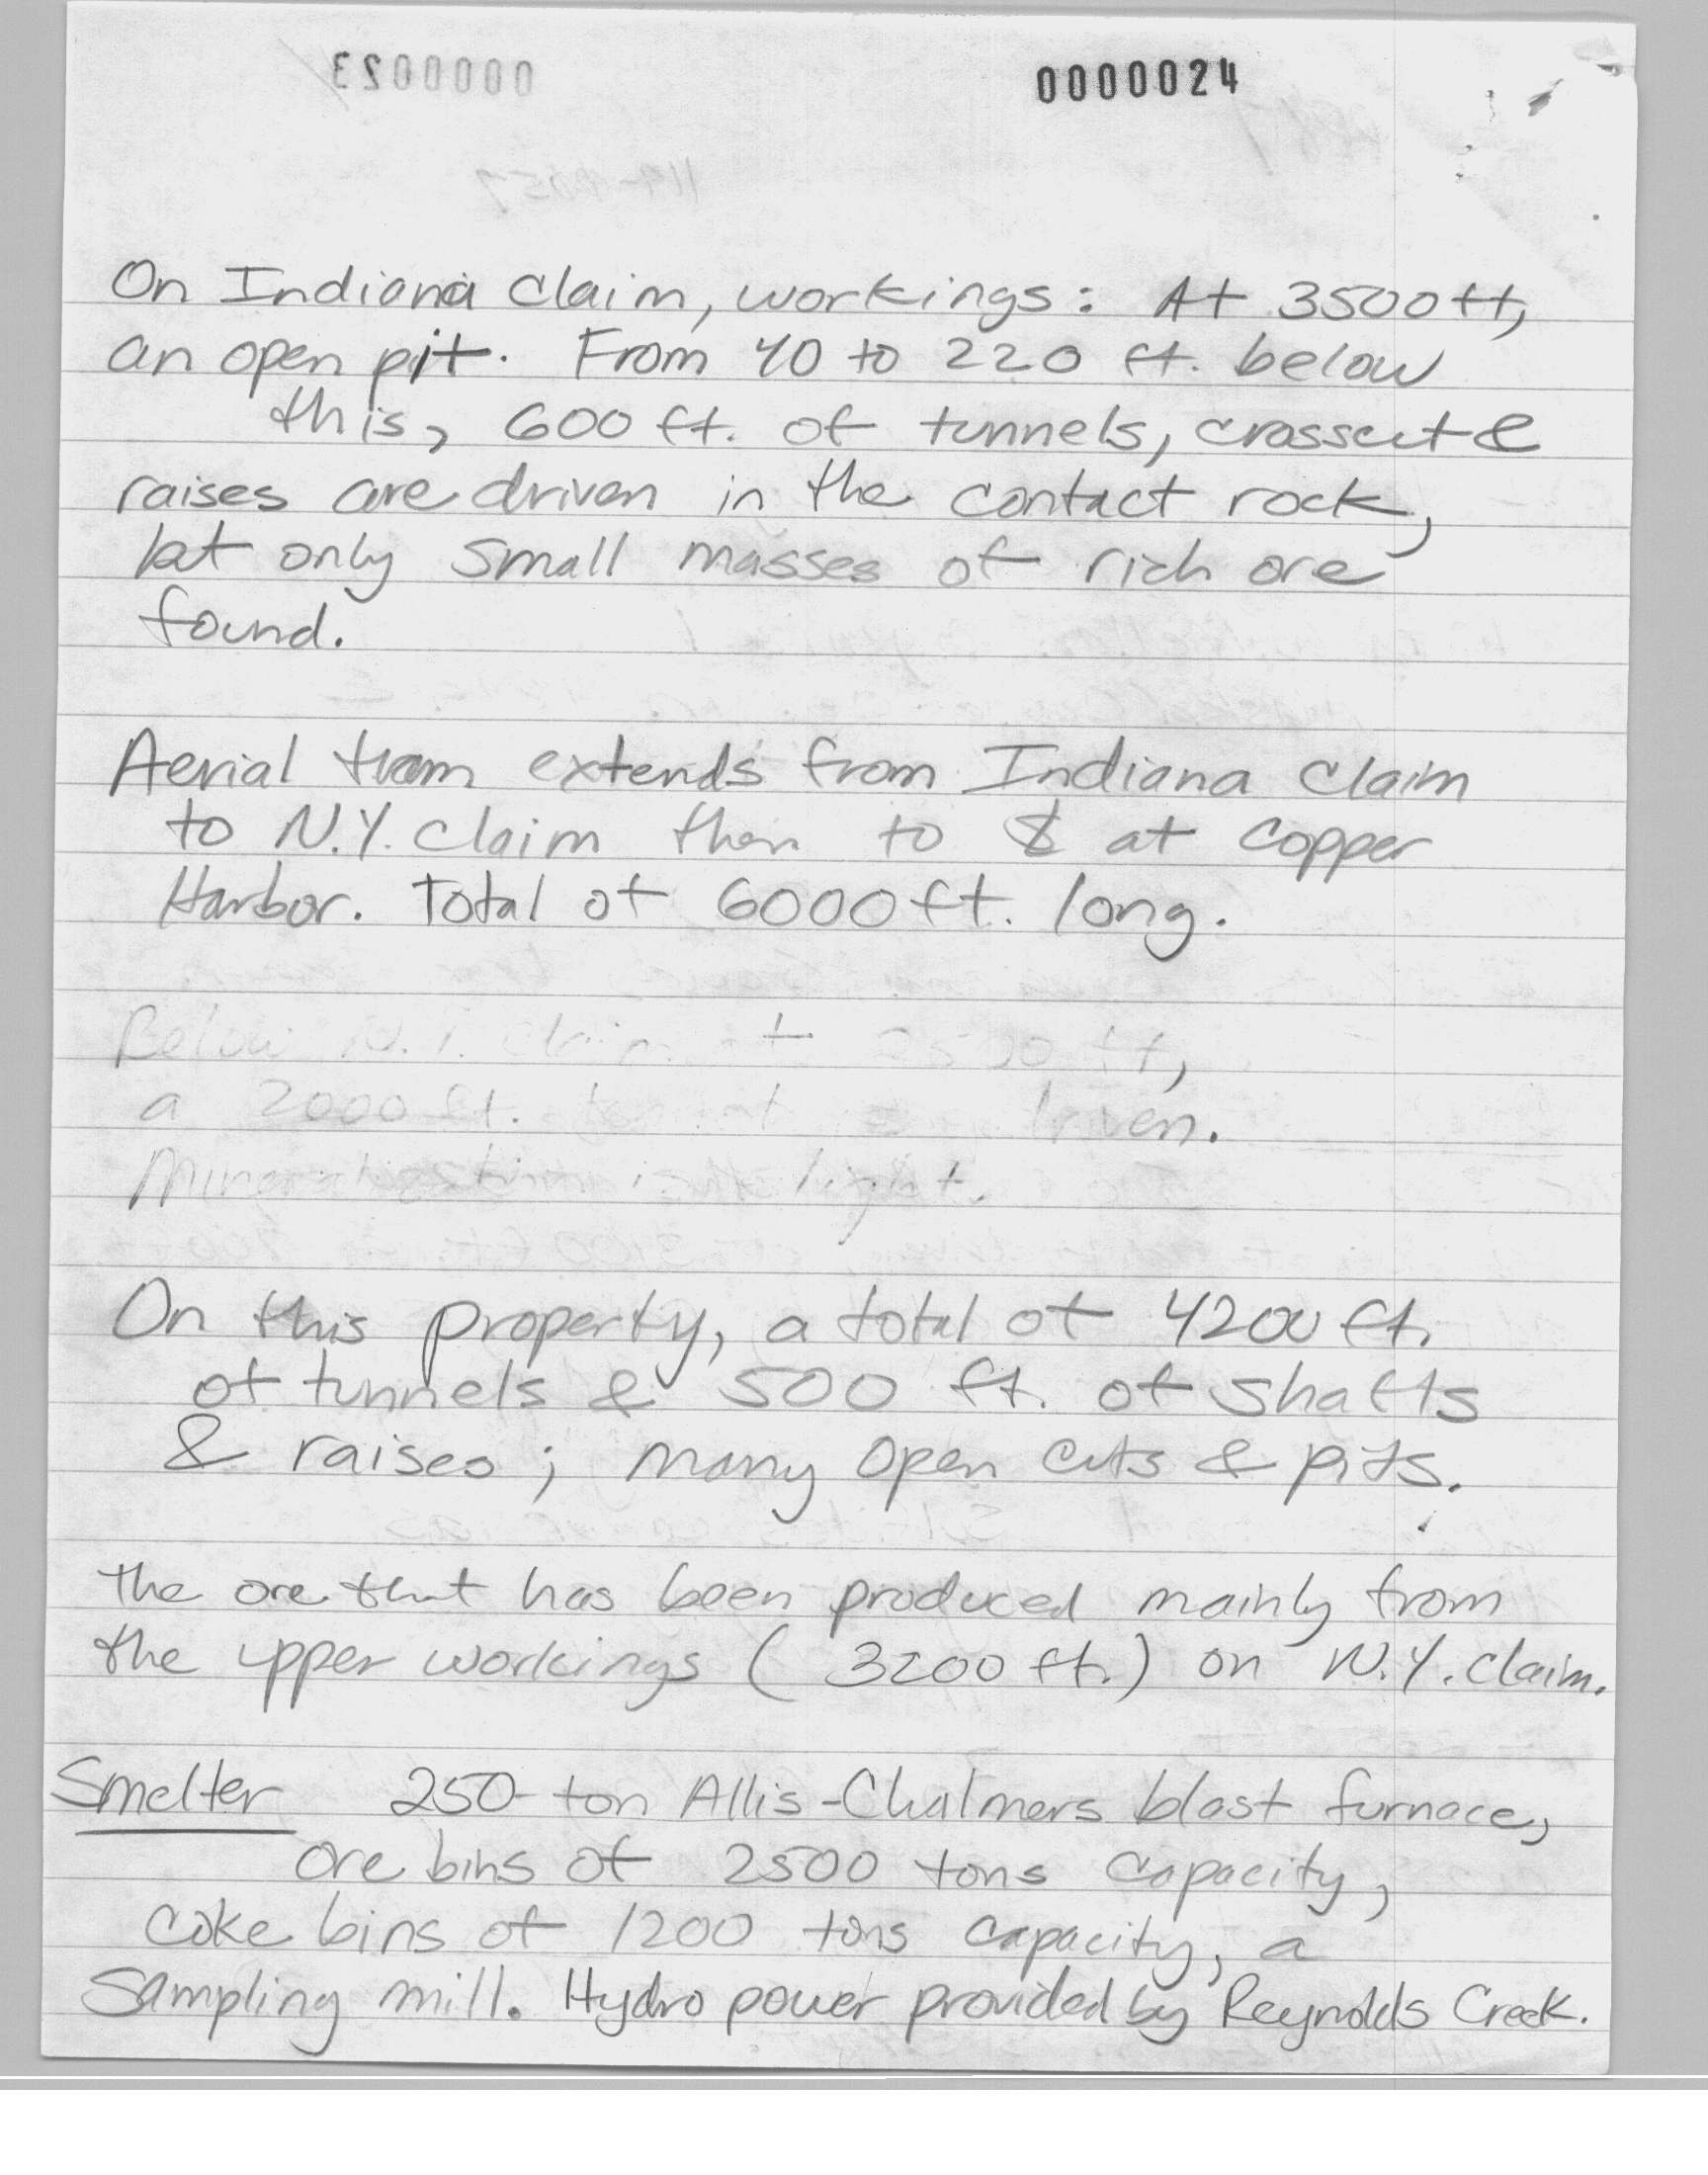 0000024
On Indiana Claim, workings: At 3500 ft,
an open pit. From 40 to 220 ft. below
this, 600 ft. of tunnels, crosscut &
raises are driven in the contact rock,
but only small masses of rich ore
found.
Aerial tram extends from Indiana Claim
to N.Y. Claim then to at Copper
Harbor. Total of 6000 ft. long.
Below N.Y. Claim at ft,
a 2000 ft. driven.
Mineralization is light.
On this property, a total of 4200 ft.
of tunnels & 500 ft. of shafts
& raises; many open cuts & pits.
the ore that has been produced mainly from
the upper workings (3200 ft.) on N.Y. Claim.
Smelter 250-ton Allis-Chalmers blast furnace,
ore bins of 2500 tons capacity,
coke bins of 1200 tons capacity, a
Sampling mill. Hydro power provided by Reynolds Creek.